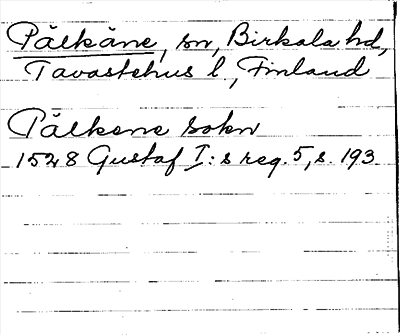 Pälkäne, sn, Birkala hd,
Tavastehus l., Finland
Pälkene sokn
1528 Gustaf I:s reg. 5, s. 193.